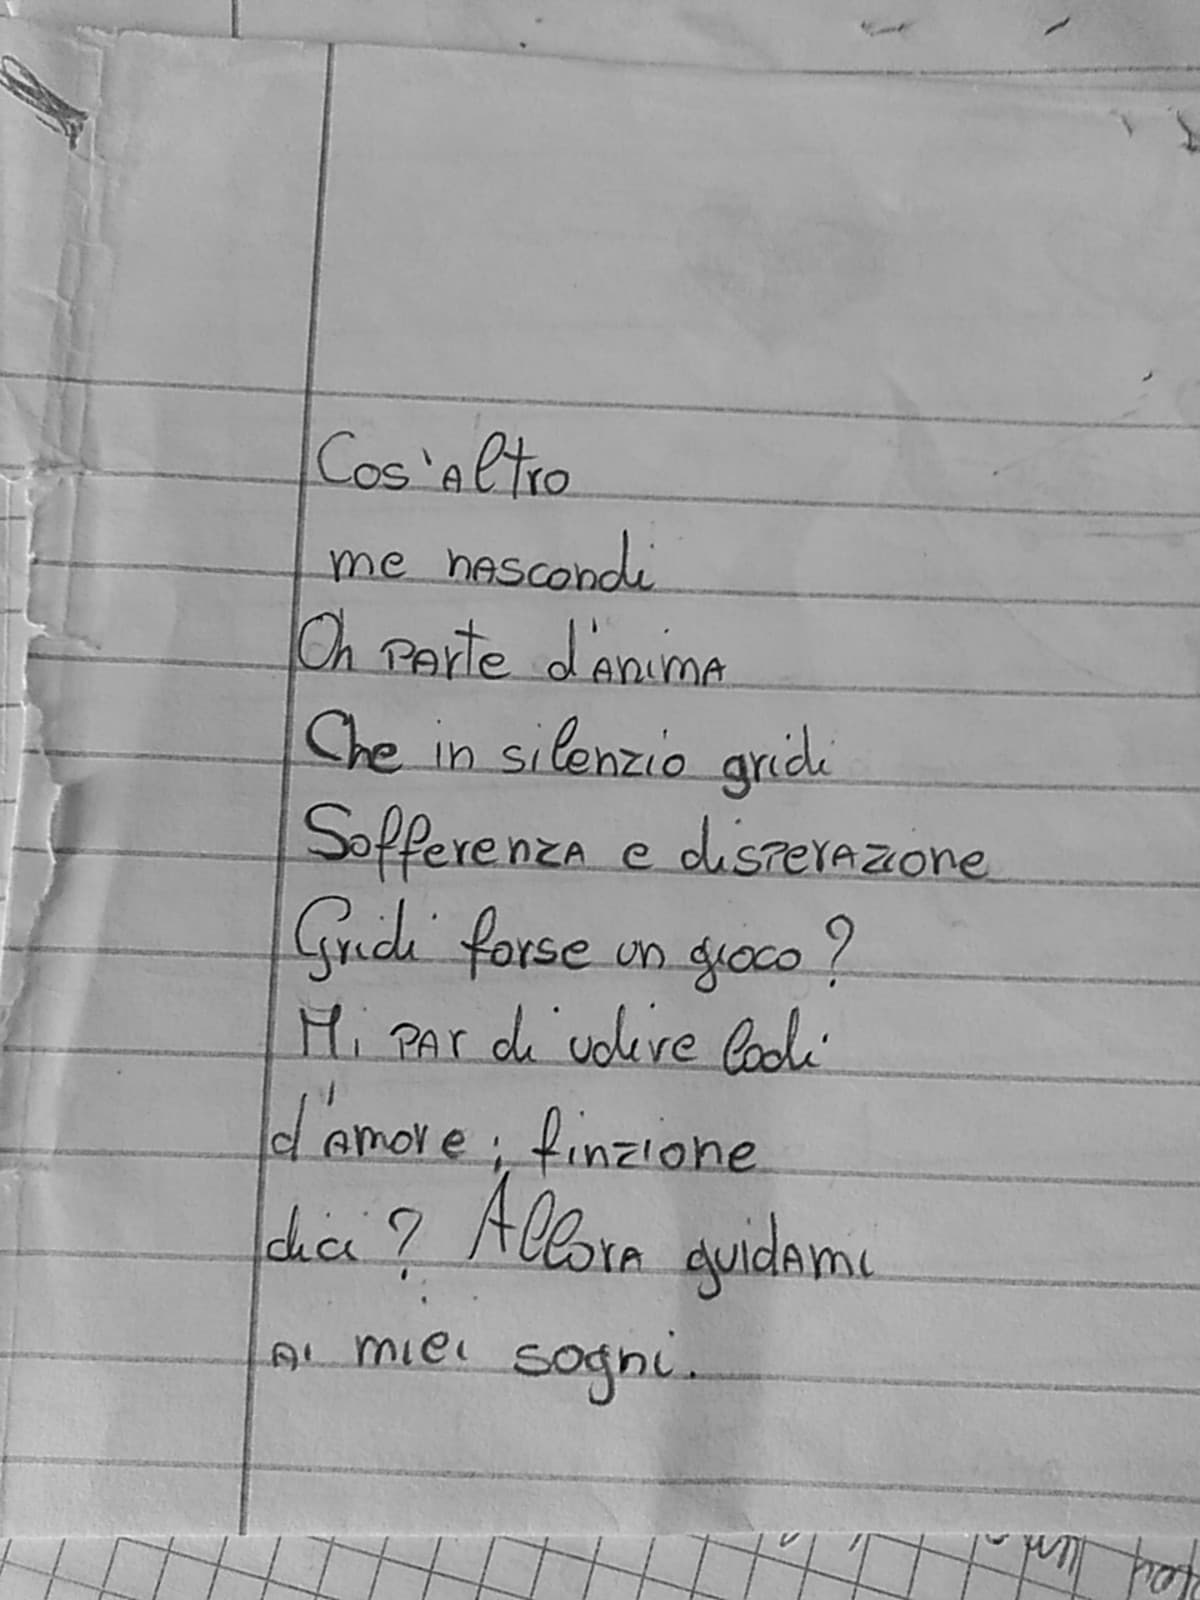 Cos'altro
me nascondi
Oh parte d'anima
Che in silenzio gridi
Sofferenza e disperazione
Gridi forse un gioco?
Mi par di udire lodi
d'amore; finzione
dici? Allora guidami
ai miei sogni.
un